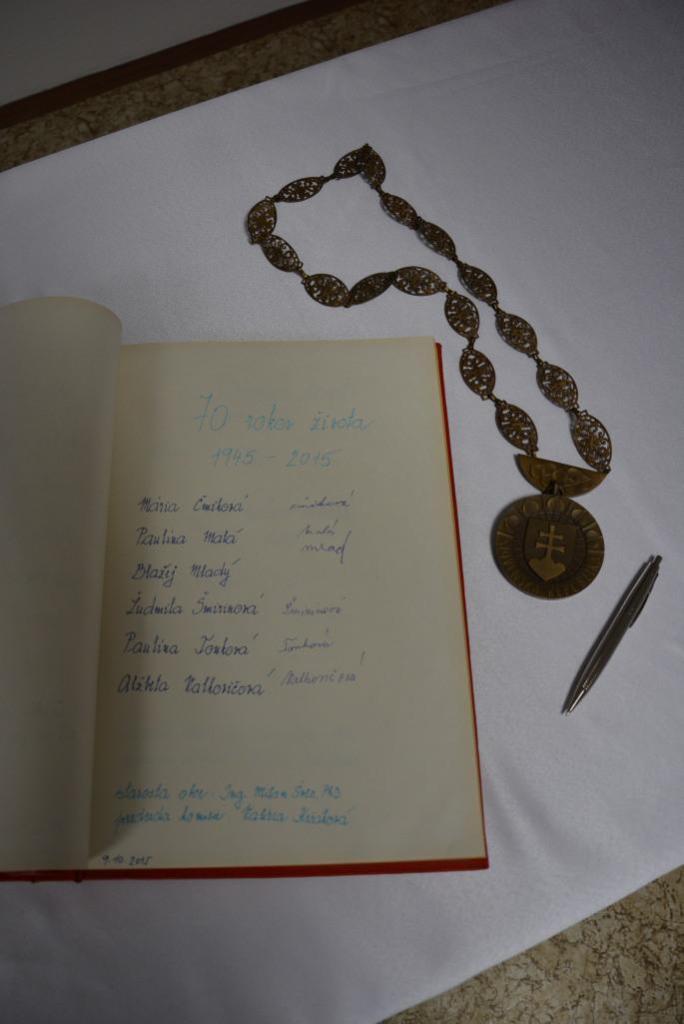 70 rokov života
1945 - 2015
Mária Čmiková
Paulína Malá Malá
Blažej Mladý mlad
Ľudmila Šmirinová Šmirinová
Paulína Tonková Tonková
Alžbeta Valkovičová Valkovičová
starosta obce: Ing. Milan
predseda komisie Valéria
9.10.2015